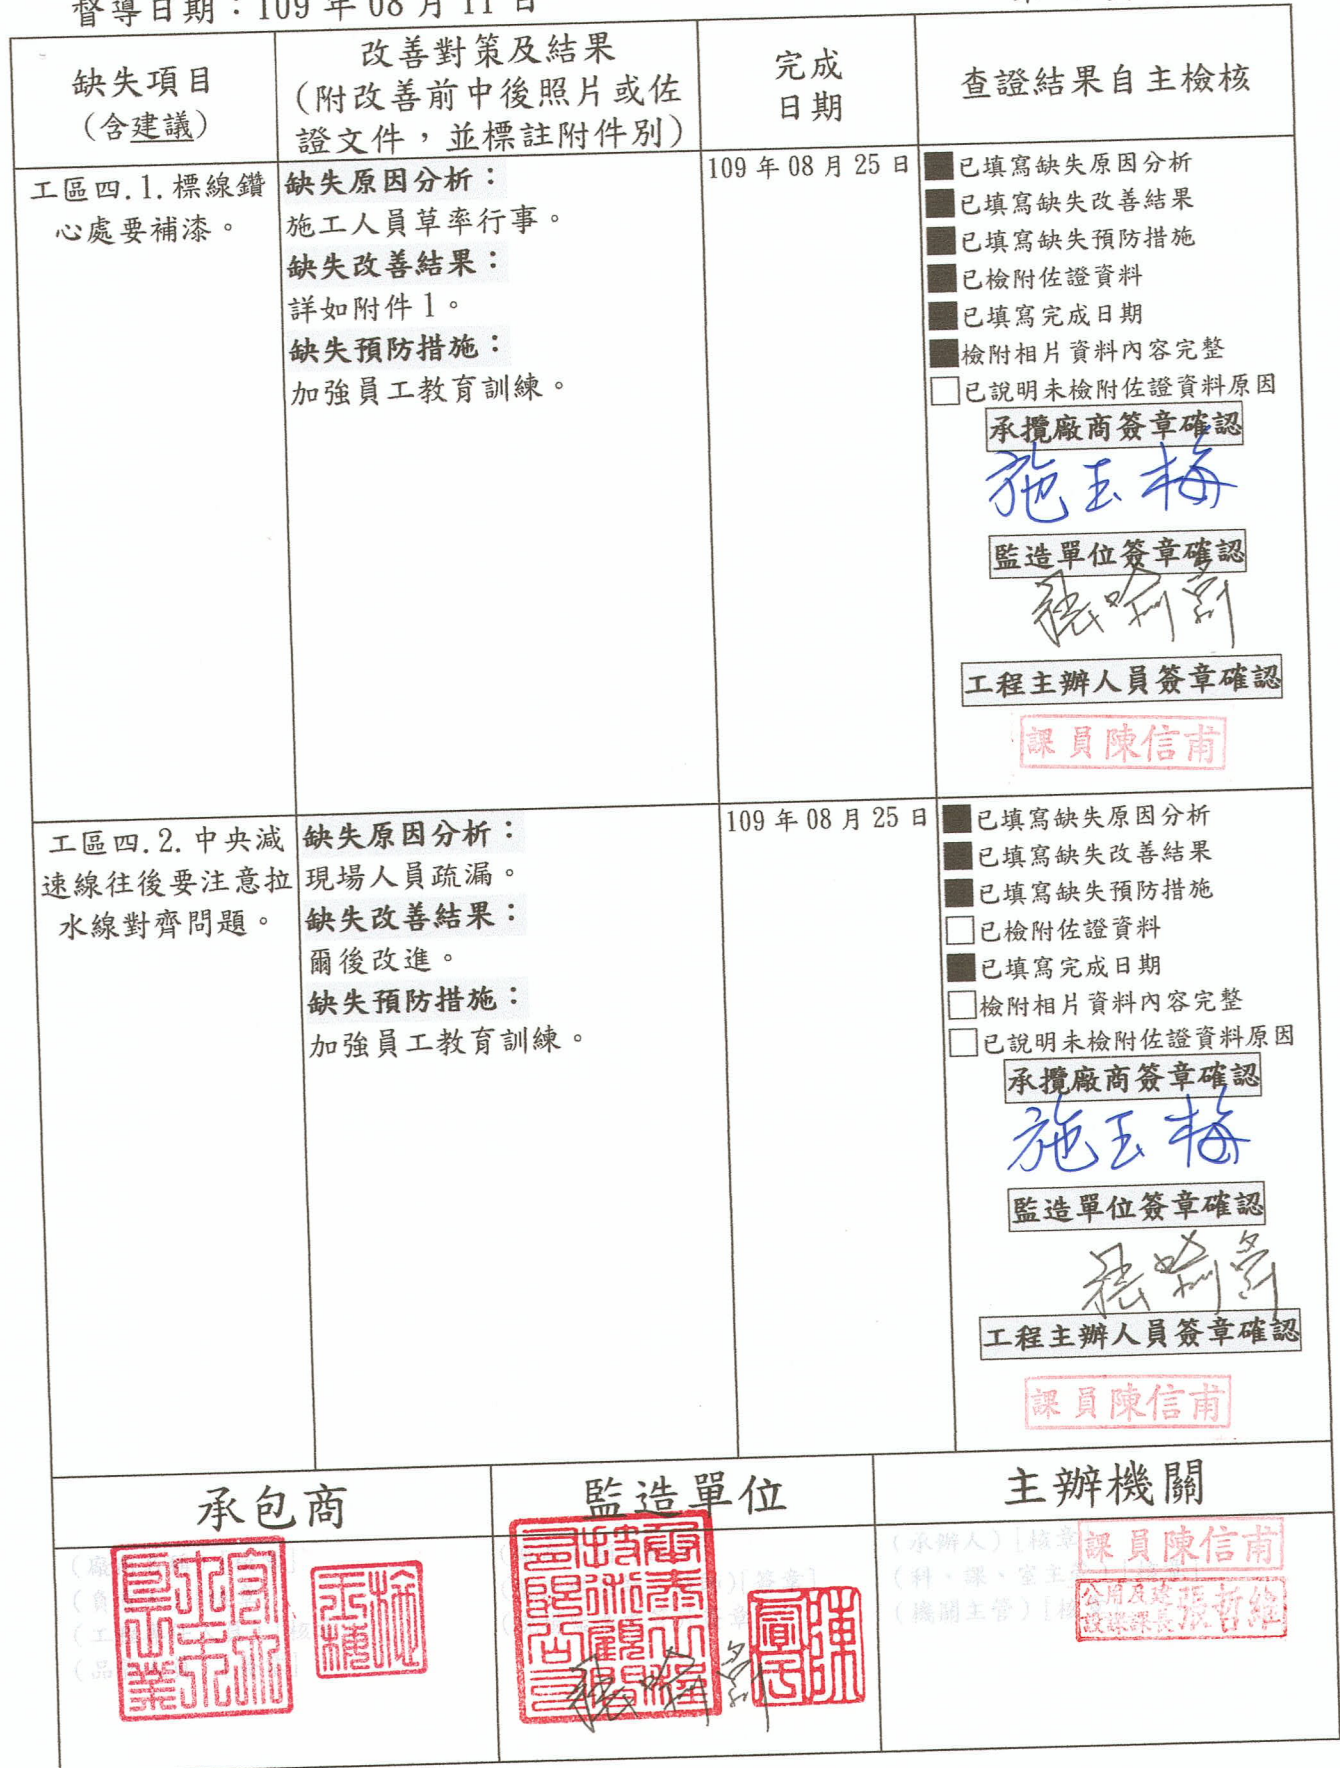 督導日期：109 年 08 月 11 日
缺失項目
（含建議）
改善對策及結果
（附改善前中後照片或佐
證文件，並標註附件別）
完成
日期
查證結果自主檢核
工區四.1.標線鑽
心處要補漆。
缺失原因分析：
施工人員草率行事。
缺失改善結果：
詳如附件1。
缺失預防措施：
加強員工教育訓練。
109 年 08 月 25 日
■已填寫缺失原因分析
■已填寫缺失改善結果
■已填寫缺失預防措施
■已檢附佐證資料
■已填寫完成日期
■檢附相片資料內容完整
□已說明未檢附佐證資料原因
承攬廠商簽章確認
施玉梅
監造單位簽章確認
工程主辦人員簽章確認
課員陳信甫
工區四.2.中央減
速線往後要注意拉
水線對齊問題。
缺失原因分析：
現場人員疏漏。
缺失改善結果：
爾後改進。
缺失預防措施：
加強員工教育訓練。
109 年 08 月 25 日
■已填寫缺失原因分析
■已填寫缺失改善結果
■已填寫缺失預防措施
□已檢附佐證資料
■已填寫完成日期
□檢附相片資料內容完整
□已說明未檢附佐證資料原因
承攬廠商簽章確認
施玉梅
監造單位簽章確認
工程主辦人員簽章確認
課員陳信甫
承包商
監造單位
主辦機關
（承辦人）[核章
課員陳信甫
（科、課、室主
（機關主管）
公用及建
設課課長張哲維